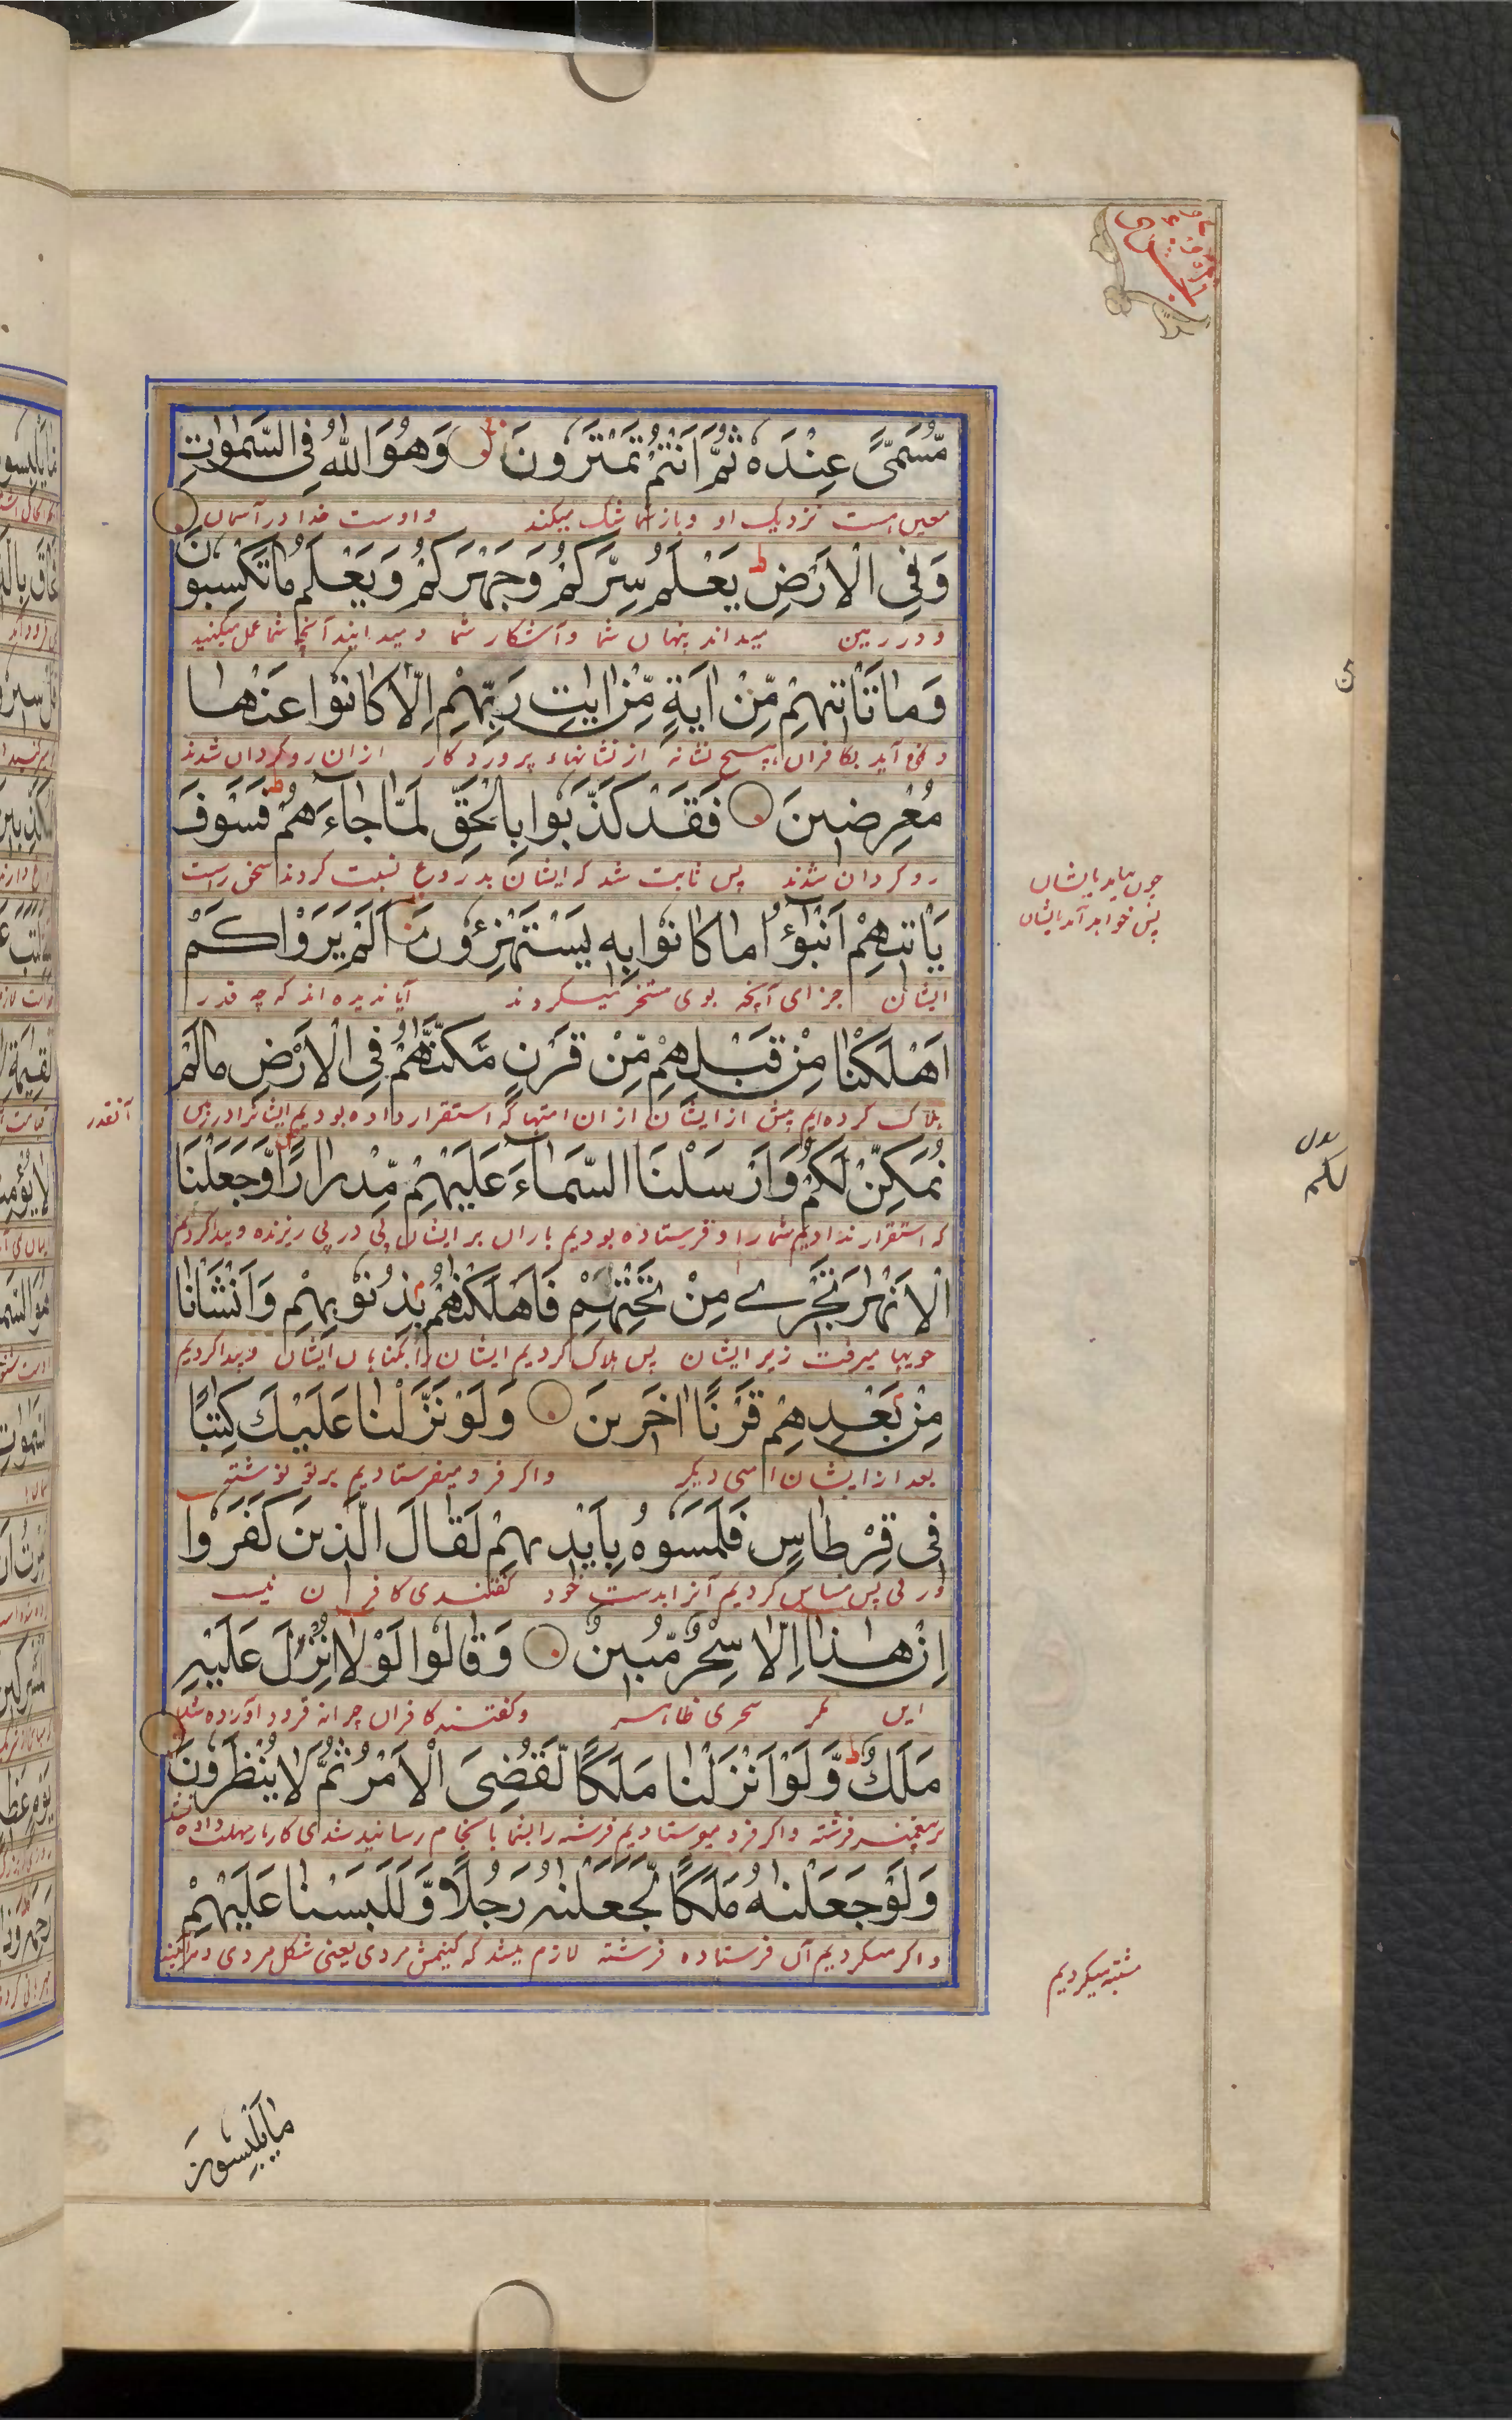 مُّسَمًّى عِنْدَهُ ثُمَّ اَنْتُمْ تَمْتَرُونَ وَهُوَ اللّٰهُ فِى السَّمٰوٰتِ
معین است نزدیک او و باز شما شک میکند و اوست خدا در آسمان
وَفِى الْاَرْضِ ط يَعْلَمُ سِرَّكُمْ وَجَهْرَكُمْ وَيَعْلَمُ مَا تَكْسِبُونَ
و در زمین میداند پنهان شما و آشکار شما و میداند آنچه شما عمل میکنید
وَمَا تَاْتِيْهِمْ مِّنْ اٰيَةٍ مِّنْ اٰيٰتِ رَبِّهِمْ اِلَّا كَانُوْا عَنْهَا
و نمی آید بکافران هیچ نشانه از نشانهاء پروردکار از ان روکردان شدند
مُعْرِضِينَ فَقَدْ كَذَّبُوا بِالْحَقِّ لَمَّا جَاءَهُمْ ط فَسَوْفَ
روکردان شدند پس ثابت شد که ایشان بدروغ نسبت کردند سخن راست
چون بیاید بایشان
پس خواهد آمد بایشان
يَاْتِيهِمْ اَنْبٰٓؤُا مَا كَانُوْا بِهٖ يَسْتَهْزِءُونَ اَلَمْ يَرَوْا كَمْ
ایشان جزای آنچه بوی مسخر میکردند آیا ندیده اند که چه قدر
اَهْلَكْنَا مِنْ قَبْلِهِمْ مِّنْ قَرْنٍ مَّكَّنّٰهُمْ فِى الْاَرْضِ مَا لَمْ
هلاک کرده ایم پیش از ایشان از ان امتها که استقرار داده بودیم ایشانرا در زمین
آنقدر
نُمَكِّنْ لَكُمْ وَاَرْسَلْنَا السَّمَاءَ عَلَيْهِمْ مِّدْرَارًا وَّجَعَلْنَا
بدل
لكم
که استقرار ندادیم شما را و فرستاده بودیم باران بر ایشان پی در پی ریزنده و پیدا کردیم
الْاَنْهٰرَ تَجْرِے مِنْ تَحْتِهِمْ فَاَهْلَكْنٰهُمْ بِذُنُوْبِهِمْ وَاَنْشَاْنَا
جویها میرفت زیر ایشان پس هلاک کردیم ایشان را بکناهان ایشان و پیدا کردیم
مِنْ بَعْدِهِمْ قَرْنًا اٰخَرِينَ وَلَوْ نَزَّلْنَا عَلَيْكَ كِتٰبًا
بعد از ایشان امتی دیکر و اکر فرو میفرستادیم بر تو نوشته
فِى قِرْطَاسٍ فَلَمَسُوْهُ بِاَيْدِيهِمْ لَقَالَ الَّذِينَ كَفَرُوا
پس مساس کردیم آنرا بدست خود کفتندی کافران نیست
اِنْ هٰذَا اِلَّا سِحْرٌ مُّبِينٌ وَقَالُوا لَوْلَا اُنْزِلَ عَلَيْهِ
این مکر سحری ظاهر و کفتند کافران چرا نه فرود آورده شد
مَلَكٌ ط وَّلَوْ اَنْزَلْنَا مَلَكًا لَّقُضِىَ الْاَمْرُ ثُمَّ لَا يُنْظَرُوْنَ
بر پیغمبر فرشته و اکر فرو میفرستادیم فرشته را بشما بانجام رسانیده شدی کار باز مهلت داده نشد
وَلَوْ جَعَلْنٰهُ مَلَكًا لَّجَعَلْنٰهُ رَجُلًا وَّلَلَبَسْنَا عَلَيْهِمْ
و اکر میکردیم آن فرستاده فرشته لازم میشد که کنیمش مردی یعنی شکل مردی و هرآیینه
مشتبه میکردیم
مَا يَلْبِسُوْنَ